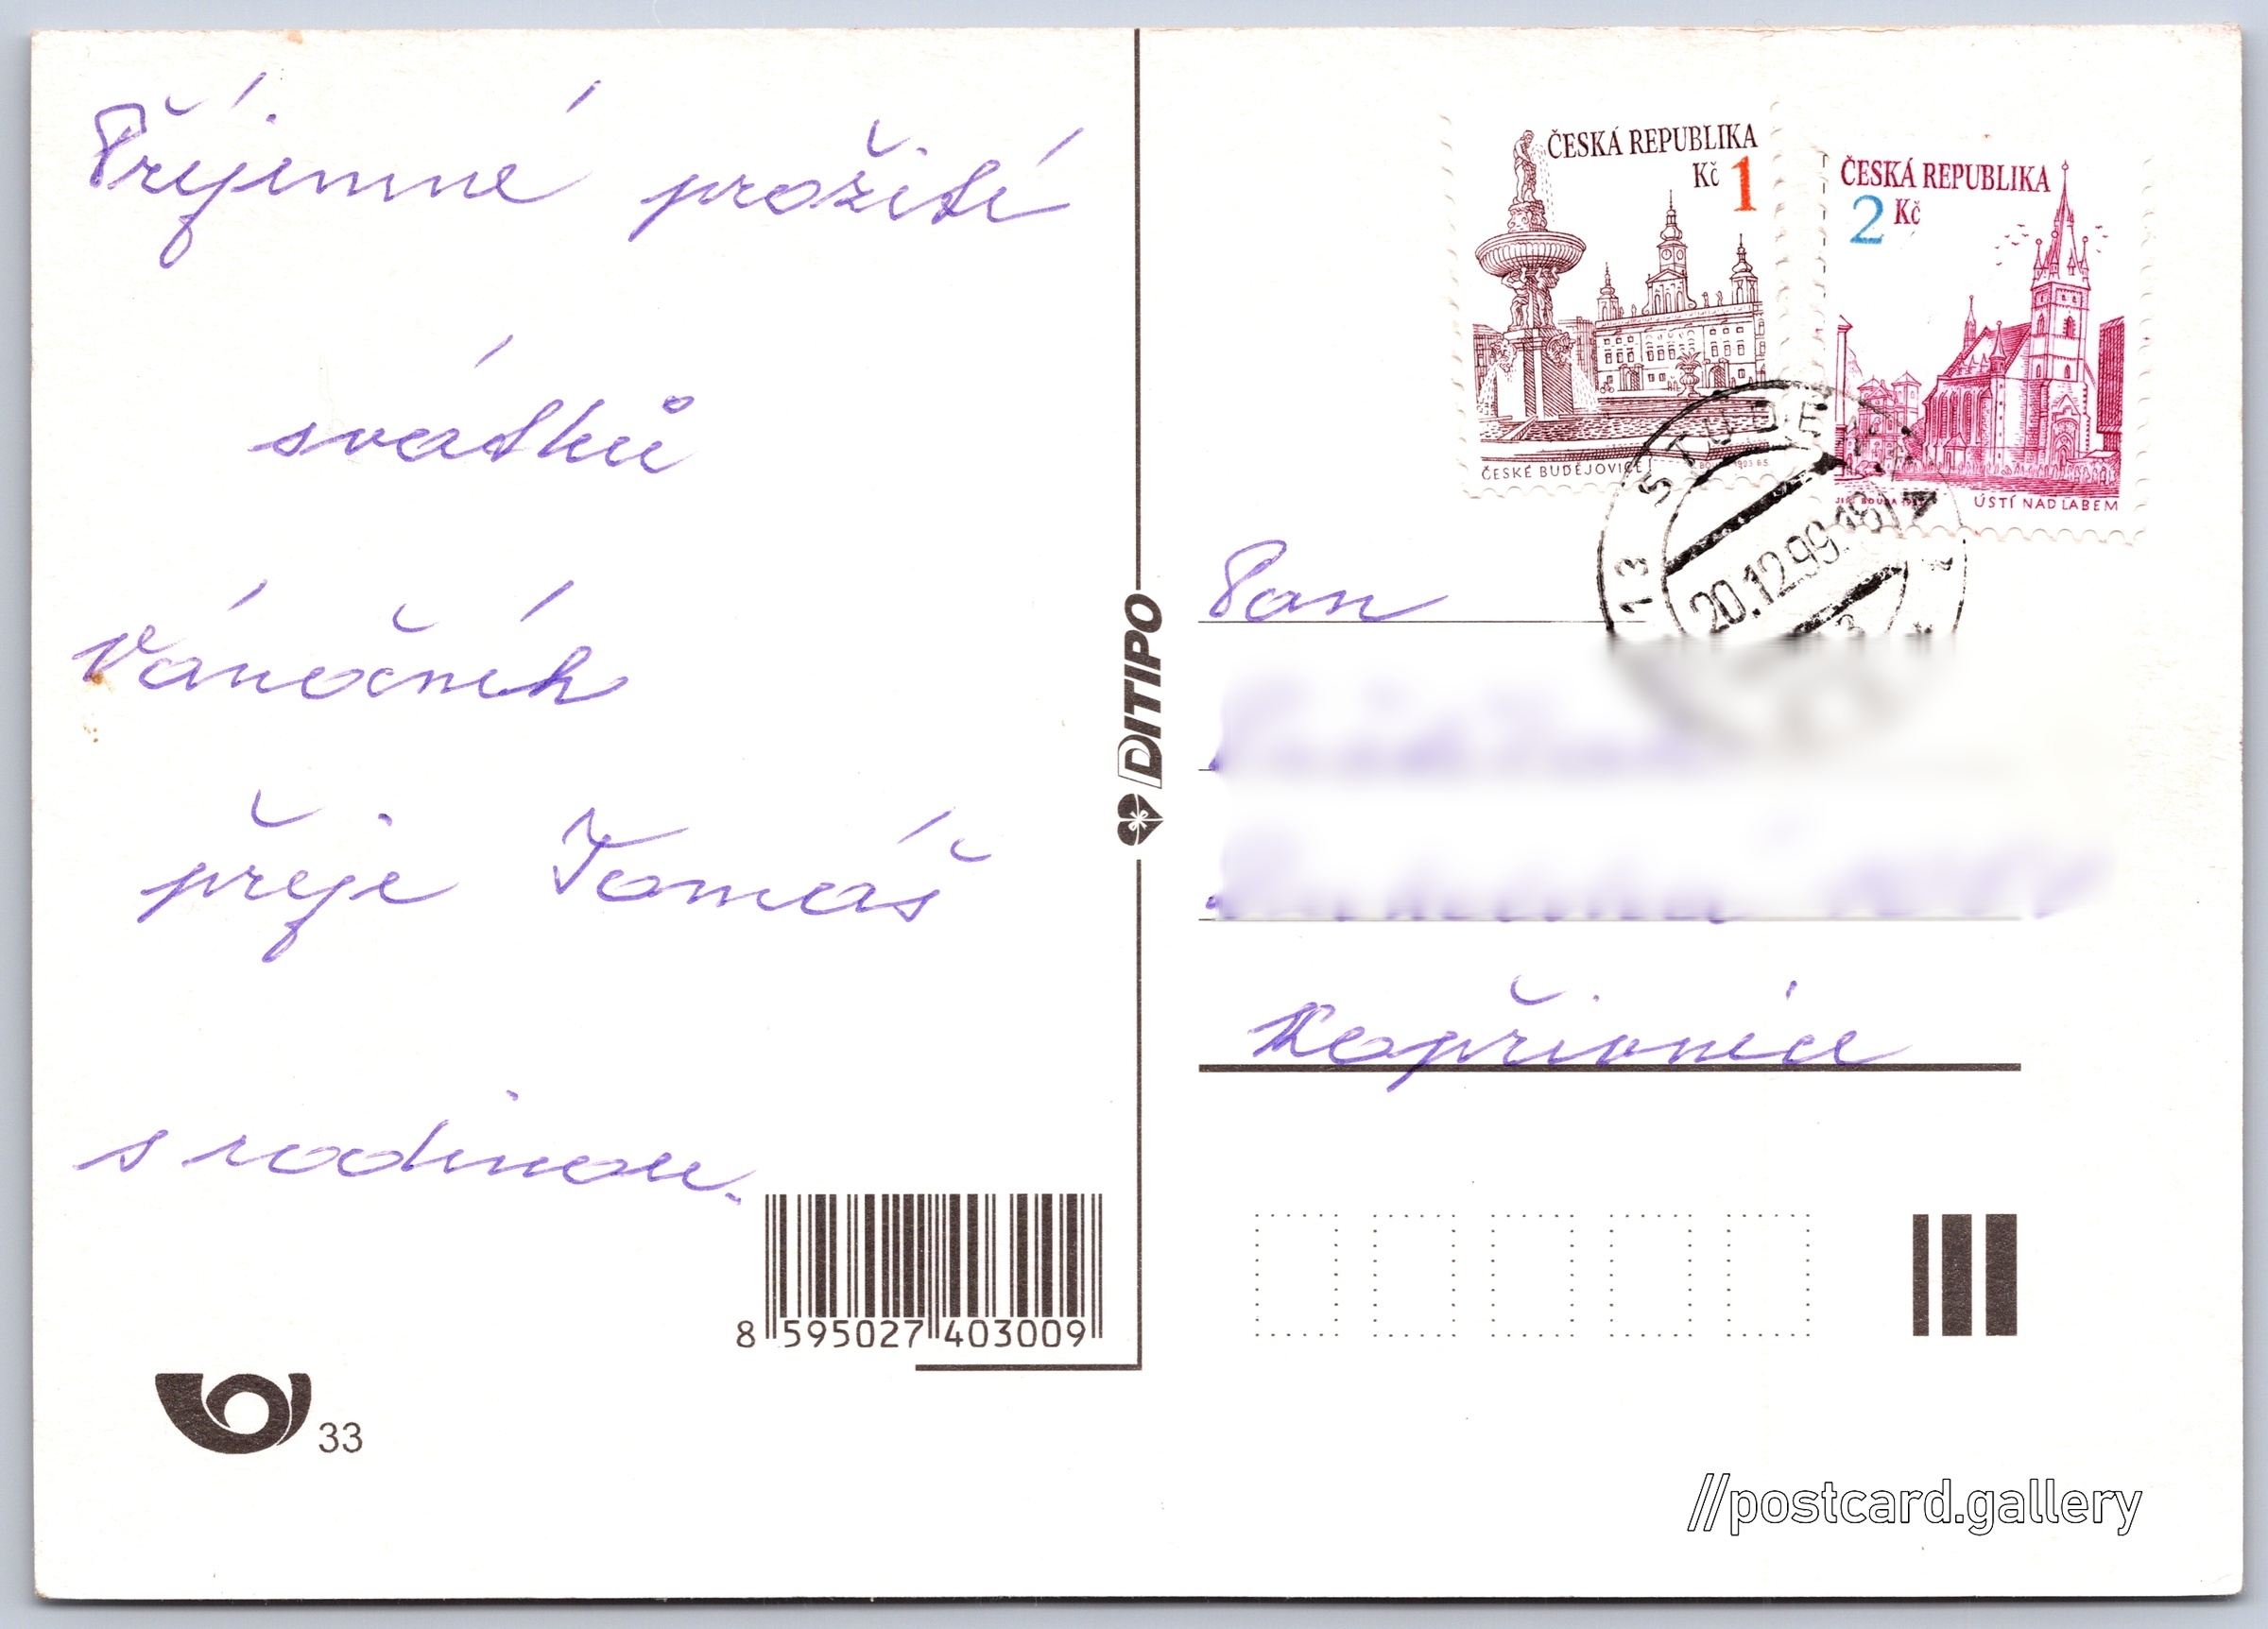 Příjemné prožití
svátků
Vánočních
přeje Tomáš
s rodinou.
8 595027 403009
33
DITIPO
ČESKÁ REPUBLIKA
Kč 1
ČESKÉ BUDĚJOVICE
ČESKÁ REPUBLIKA
2 Kč
ÚSTÍ NAD LABEM
20.12.99.18
Pan
Kopřivnice
//postcard.gallery